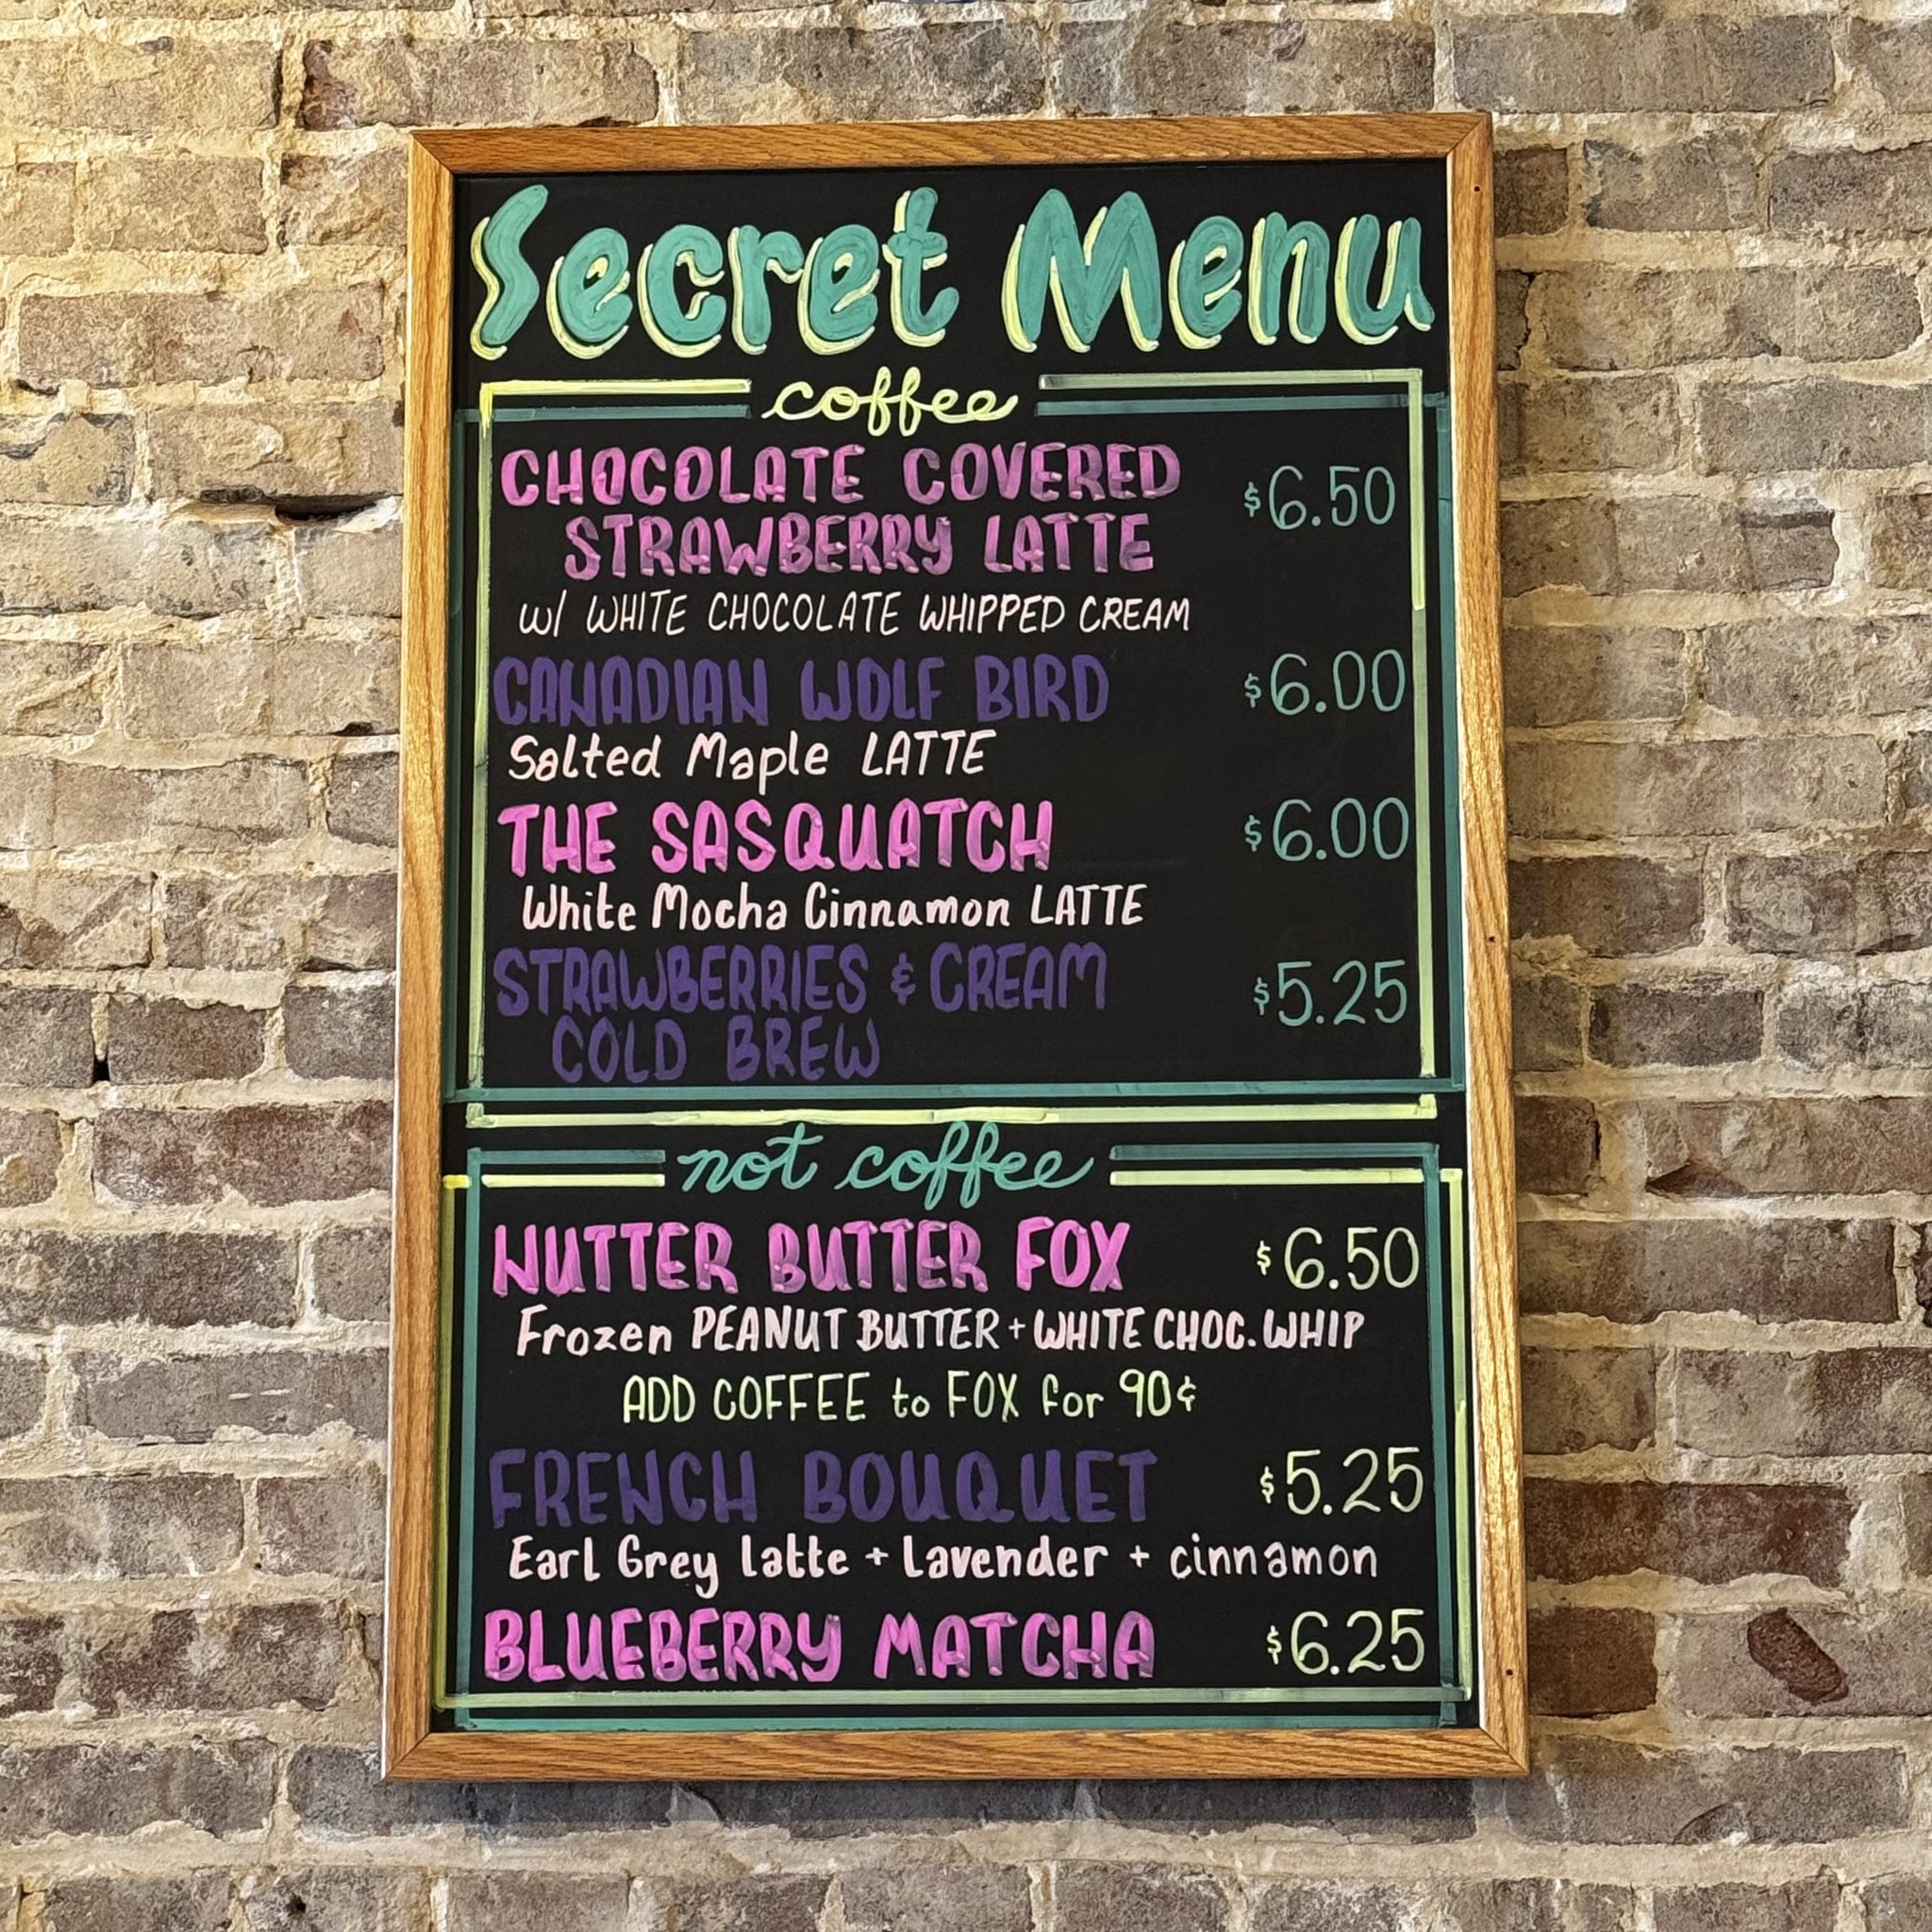 Secret Menu
coffee
CHOCOLATE COVERED
STRAWBERRY LATTE
$6.50
w/ WHITE CHOCOLATE WHIPPED CREAM
CANADIAN WOLF BIRD $6.00
Salted Maple LATTE
THE SASQUATCH $6.00
White Mocha Cinnamon LATTE
STRAWBERRIES & CREAM $5.25
COLD BREW
not coffee
NUTTER BUTTER FOX $6.50
Frozen PEANUT BUTTER + WHITE CHOC. WHIP
ADD COFFEE to FOX for 90¢
FRENCH BOUQUET $5.25
Earl Grey Latte + Lavender + cinnamon
BLUEBERRY MATCHA $6.25